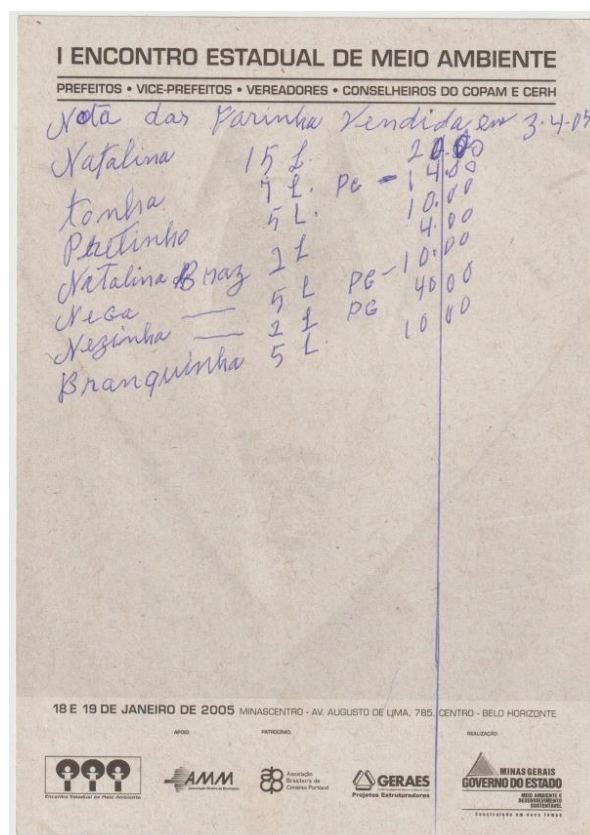 I ENCONTRO ESTADUAL DE MEIO AMBIENTE
PREFEITOS • VICE-PREFEITOS • VEREADORES • CONSELHEIROS DO COPAM E CERH
Nota das Farinha Vendida em 3-4-05
Natalina 15 L. 20.00
tonha 7 L. PG - 14.00
Pretinho 5 L. 10.00
Natalina Braz 2 L 4.00
Nega — 5 L PG - 10.00
Nezinha — 2 L PG 40 00
Branquinha 5 L. 10 00
18 E 19 DE JANEIRO DE 2005 MINASCENTRO - AV. AUGUSTO DE LIMA, 785. CENTRO - BELO HORIZONTE
APOIO PATROCÍNIO REALIZAÇÃO
Encontro Estadual de Meio Ambiente
AMM
Associação Brasileira de Cimento Portland
GERAES
Projetos Estruturadores
MINAS GERAIS
GOVERNO DO ESTADO
MEIO AMBIENTE E DESENVOLVIMENTO SUSTENTÁVEL
Construindo um novo tempo